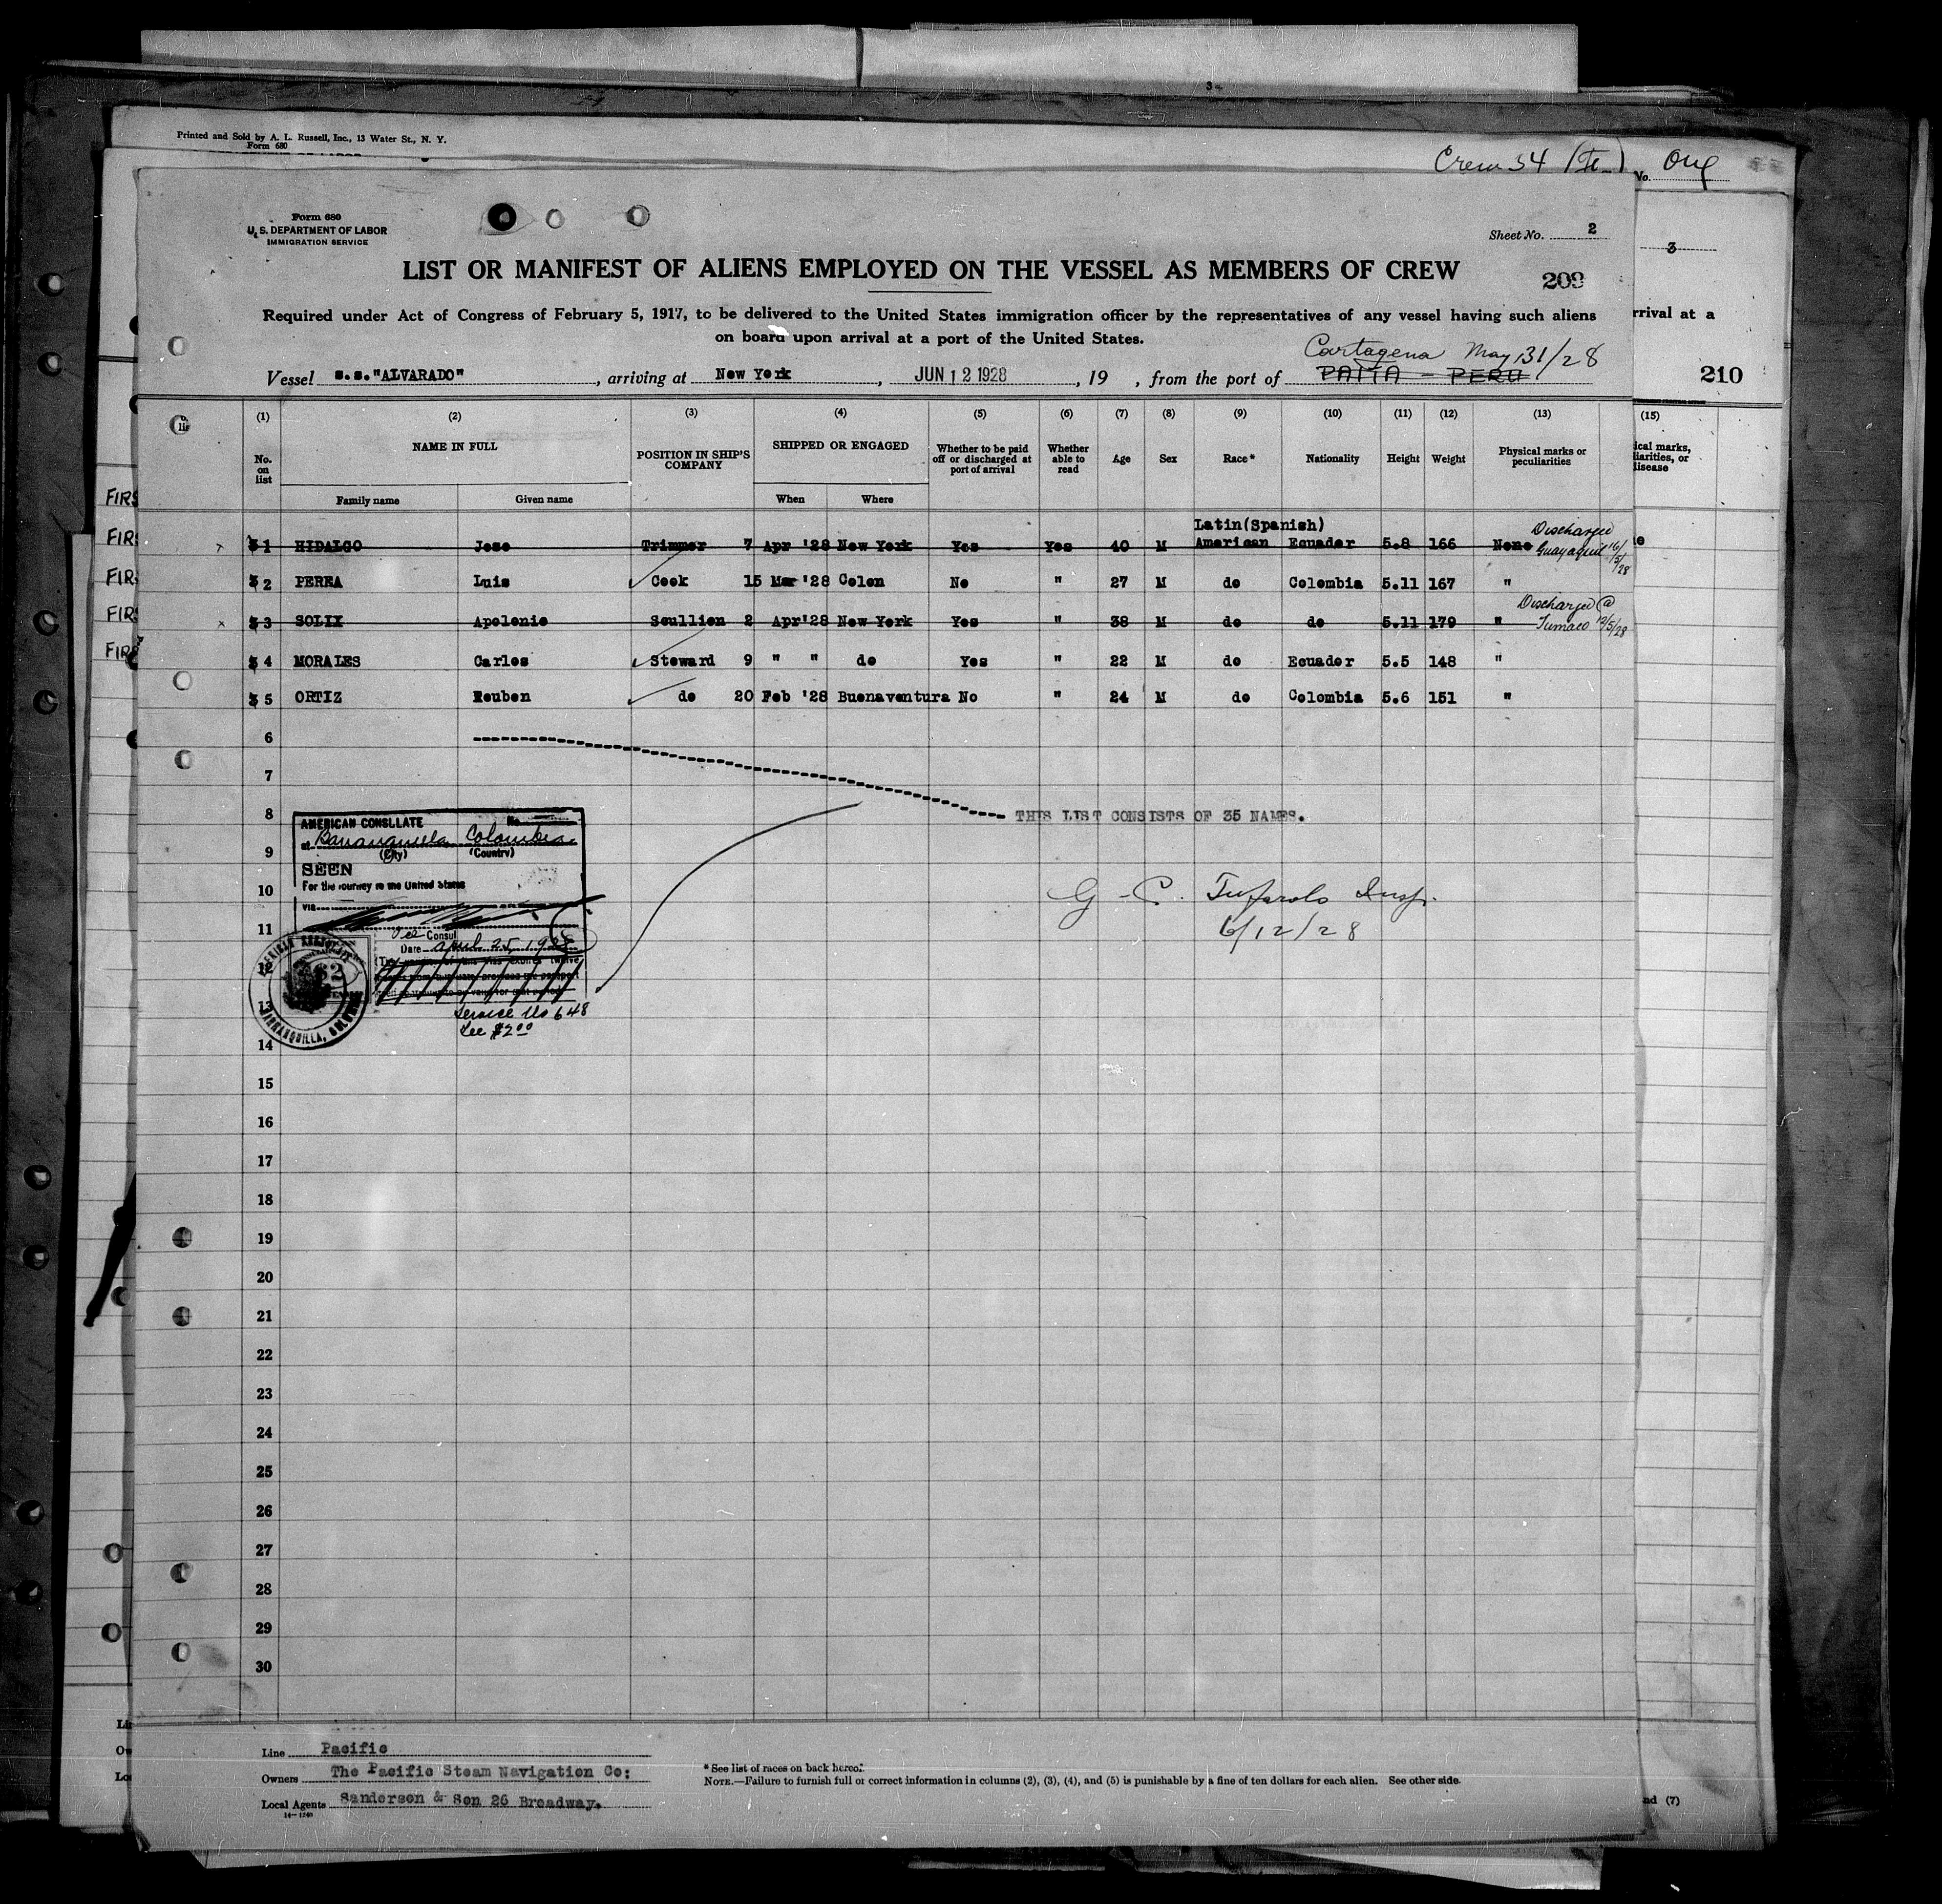 Printed and Sold by A. L. Russell, Inc., 13 Water St., N. Y.
Form 680
Crew 34
No. Orig
3
Form 680
U. S. DEPARTMENT OF LABOR
IMMIGRATION SERVICE
Sheet No. 2
LIST OR MANIFEST OF ALIENS EMPLOYED ON THE VESSEL AS MEMBERS OF CREW
209
Required under Act of Congress of February 5, 1917, to be delivered to the United States immigration officer by the representatives of any vessel having such aliens
rrival at a
on board upon arrival at a port of the United States.
Cartagena May 31/28
Vessel s.s."ALVARADO", arriving at New York, JUN 12 1928, 19 , from the port of PAITA - PERU
210
(1) (2) (3) (4) (5) (6) (7) (8) (9) (10) (11) (12) (13) (15)
No. on list
NAME IN FULL
Family name Given name
POSITION IN SHIP'S COMPANY
SHIPPED OR ENGAGED
When Where
Whether to be paid off or discharged at port of arrival
Whether able to read
Age Sex Race* Nationality Height Weight
Physical marks or peculiarities
ical marks,
liarities, or
disease
FIRS
Latin(Spanish)
31 HIDALGO Jose Trimmer 7 Apr '28 New York Yes Yes 40 M American Ecuador 5.8 166 None Discharged Guayaquil 16/5/28
32 PEREA Luis Cook 15 Mar '28 Colon No " 27 M do Colombia 5.11 167 "
33 SOLIX Apolonio Scullion 2 Apr'28 New York Yes " 38 M do do 5.11 179 " Discharged @ Tumaco 12/5/28
34 MORALES Carlos Steward 9 " " do Yes " 22 M do Ecuador 5.5 148 "
35 ORTIZ Reuben do 20 Feb '28 Buenaventura No " 24 M do Colombia 5.6 151 "
6
7
8
THIS LIST CONSISTS OF 35 NAMES.
AMERICAN CONSULATE No.
at Barranquilla Colombia
(City) (Country)
9
SEEN
For the journey to the United States
10
via
G. C. Tufarolo Insp.
11
6/12/28
Vice Consul
Date April 25, 1928
12
13
Service No 648
Fee $2.00
BARRANQUILLA, COLOMBIA
14
15
16
17
18
19
20
21
22
23
24
25
26
27
28
29
30
Line Pacific
Owners The Pacific Steam Navigation Co:
Local Agents Sanderson & Son 26 Broadway.
14—1240
* See list of races on back hereof.
NOTE.—Failure to furnish full or correct information in columns (2), (3), (4), and (5) is punishable by a fine of ten dollars for each alien. See other side.
nd (7)